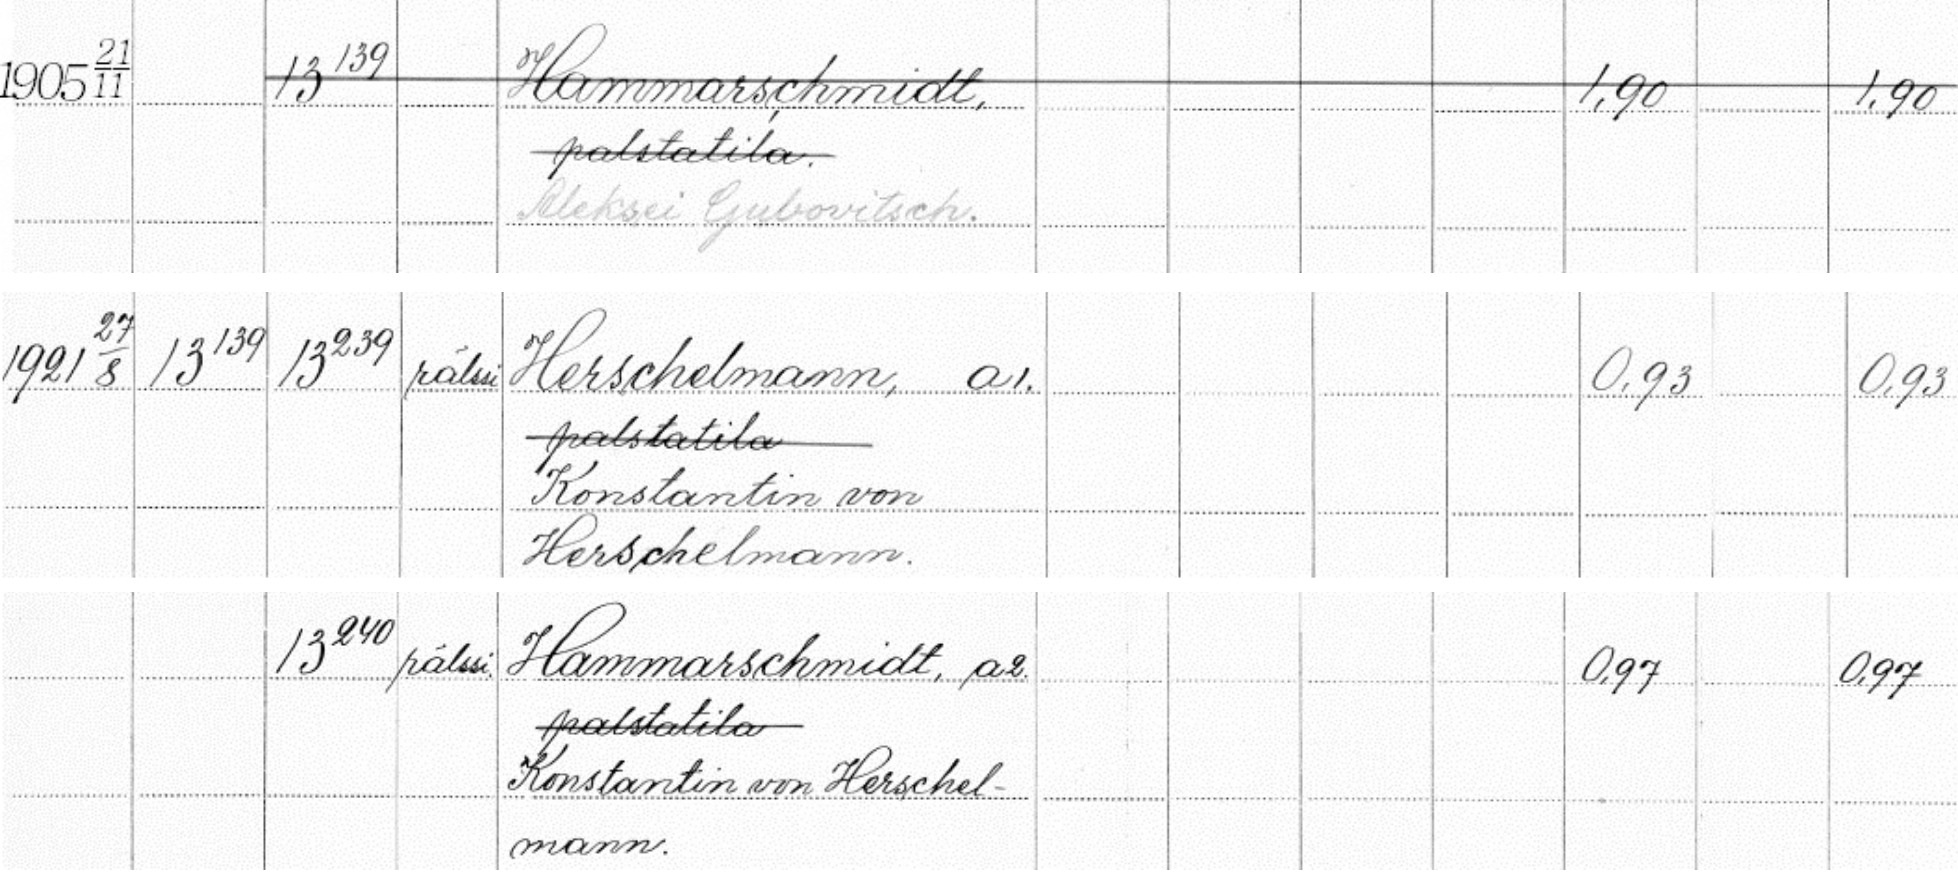 1905 21/11 13 139 Hammarschmidt, 1,90 1,90
palstatila.
Aleksei Gubovitsch.
1921 27/8 13 139 13 239 rälssi Herschelmann, a1. 0,93 0,93
palstatila
Konstantin von
Herschelmann.
13 240 rälssi. Hammarschmidt, a2. 0,97 0,97
palstatila
Konstantin von Herschel-
mann.